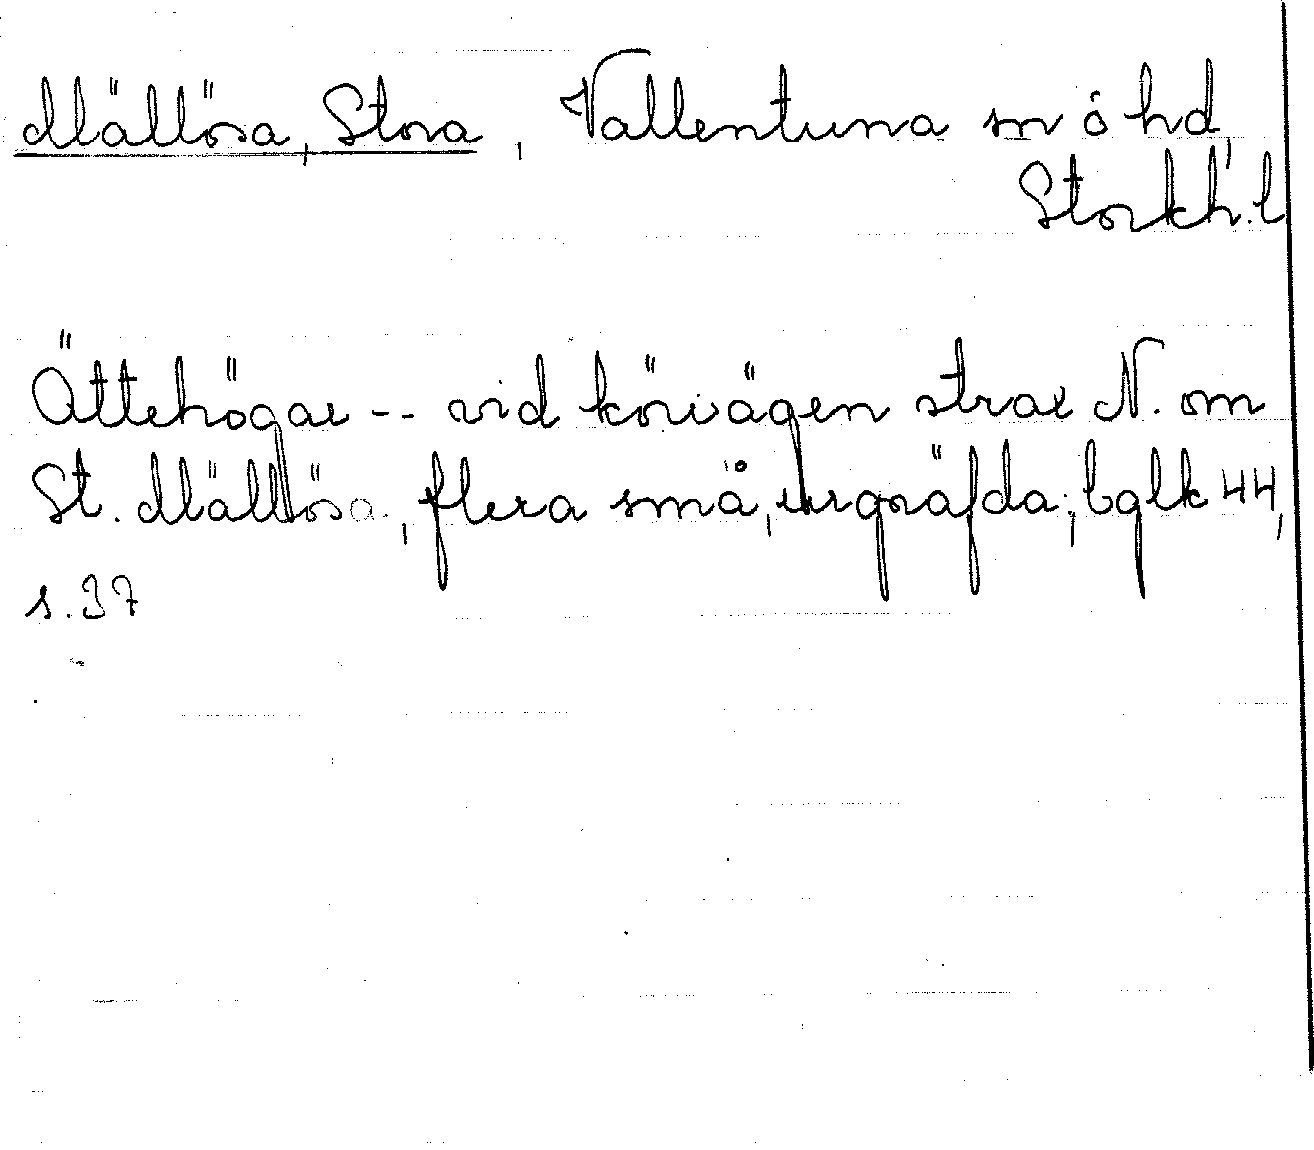 Mällösa, Stora, Vallentuna sn ó hd,
Stockh. l
Ättehögar -- vid körvägen strax N. om
St. Mällösa, flera små, urgräfda; bglk 44,
s. 37